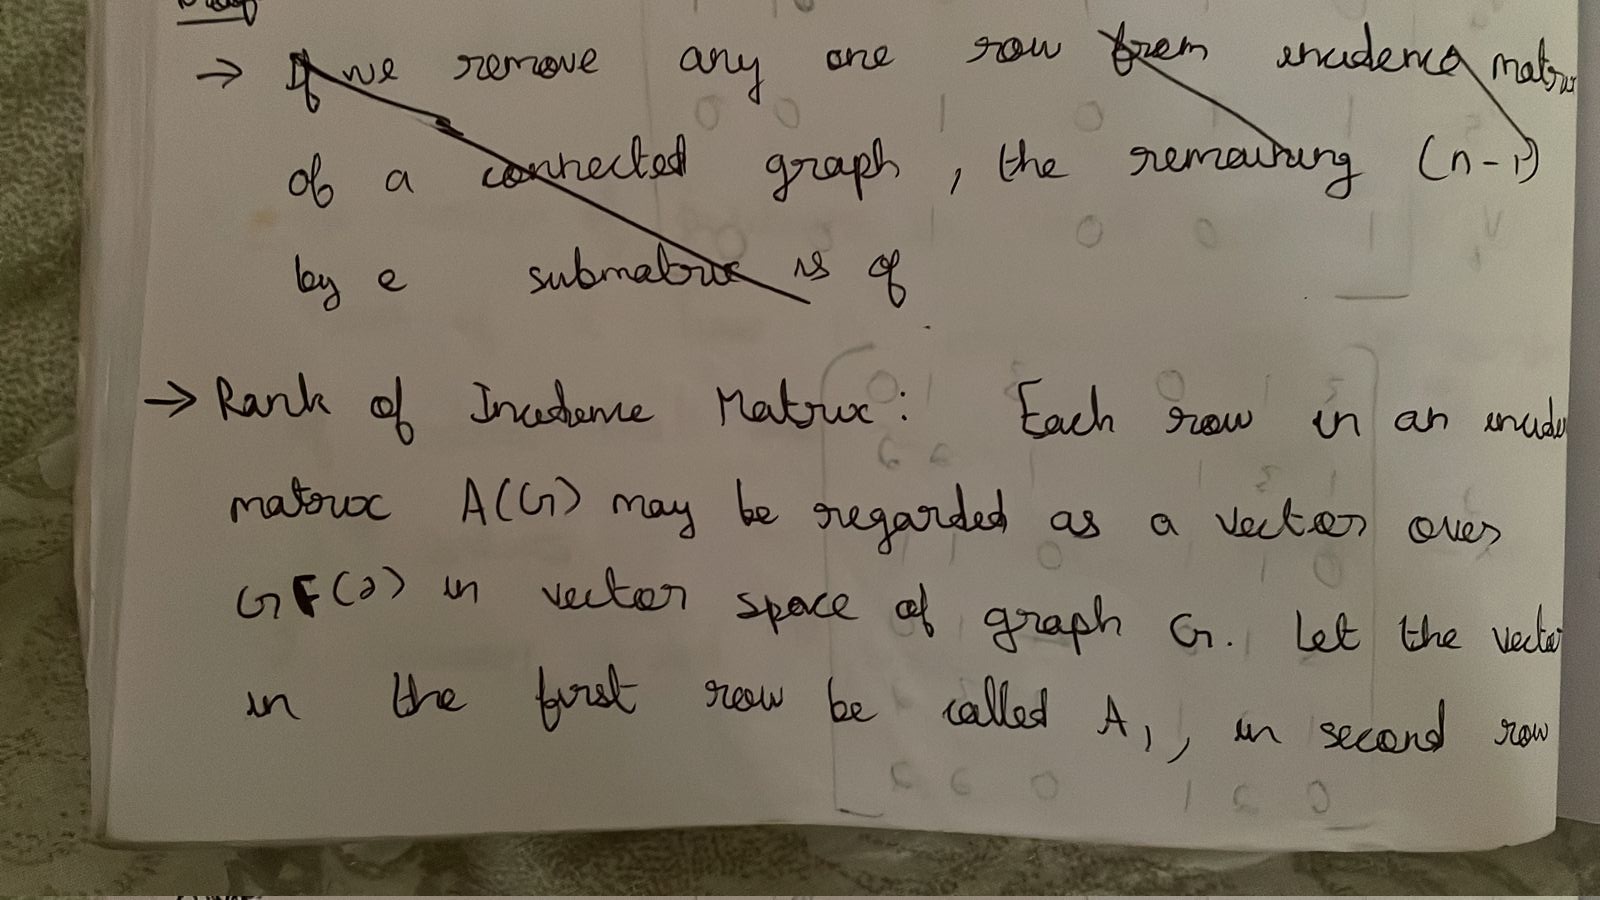 → If we remove any one row from incidence matrix
of a connected graph, the remaining (n-1)
by e submatrix is of
→ Rank of Incidence Matrix: Each row in an incide
matrix A(G) may be regarded as a vector over
GF(2) in vector space of graph G. Let the vector
in the first row be called A₁, in second row